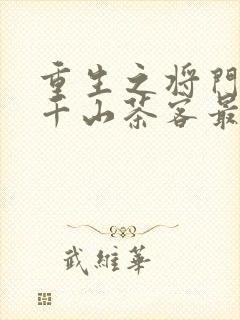 重生之将门
千山茶客最
武维华